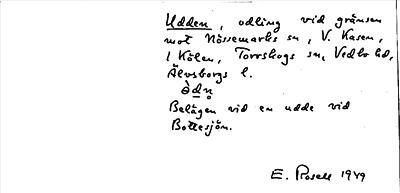 Udden, odling vid gränsen
mot Nössemarks sn, V. Kasen,
1 Kölen, Torrskogs sn, Vedbo hd,
Älvsborgs l.
Belägen vid en udde vid
Bottesjön.
E. Rosell 1949